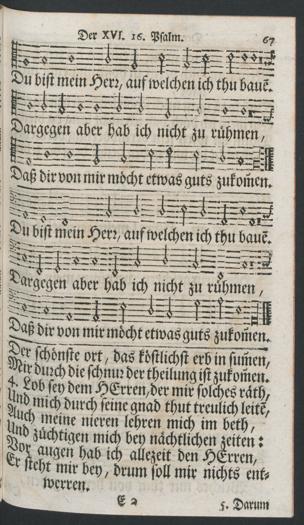 Der XVI. 16. Psalm. 67
Du bist mein Herr, auf welchen ich thu baue̅.
Dargegen aber hab ich nicht zu rühmen,
Daß dir von mir möcht etwas guts zukom̅en.
Du bist mein Herr, auf welchen ich thu baue̅.
Dargegen aber hab ich nicht zu rühmen,
Daß dir von mir möcht etwas guts zukom̅en.
Der schönste ort, das köstlichst erb in sum̅en,
Mir durch die schnur der theilung ist zukom̅en.
4. Lob sey dem HErren, der mir solches räth,
Und mich durch seine gnad thut treulich leite̅,
Auch meine nieren lehren mich im beth,
Und züchtigen mich bey nächtlichen zeiten:
Vor augen hab ich allezeit den HErren,
Er steht mir bey, drum soll mir nichts ent-
werren.
E 2 5. Darum